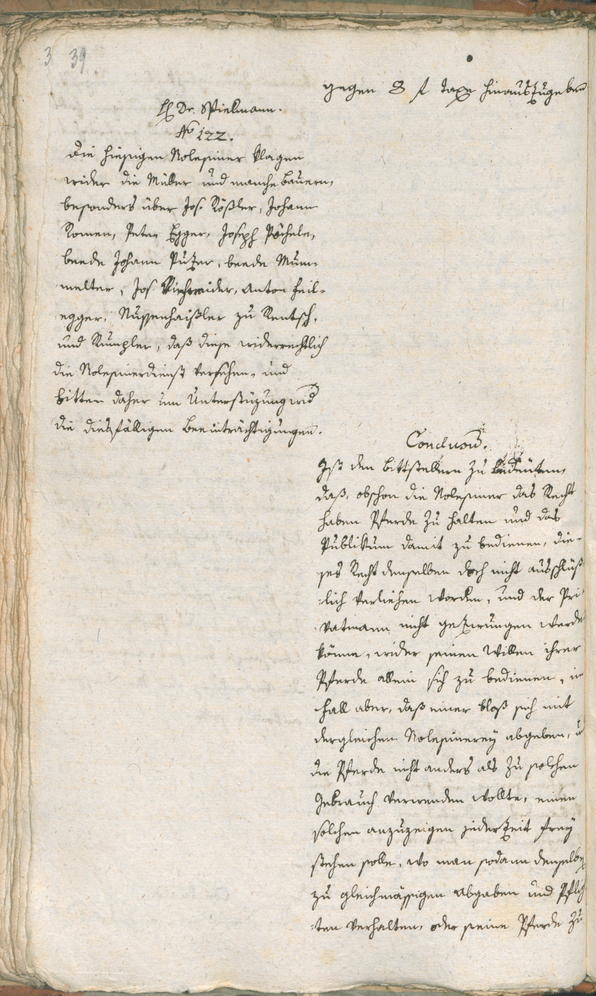 3 39
gegen 3 f Taxe hinauszugeben
H Dr. Spielmann.
No 122.
Die hiesigen Nolesiner klagen
wider die Müller und manche Bauern,
besonders über Jos. Rößler, Johann
Romen, Peter Egger, Joseph Pöchele,
beede Johann Putzer, beede Mum-
melter, Jos. Viechweider, Anton Heil-
egger, Nussenhaißler zu Rentsch,
und Rungler, daß diese widerrechtlich
die Nolesinerdienst versehen, und
bitten daher um Unterstüzung wid
die diesfälligen Beeinträchtigungen.
Conclusum.
Ist den Bittstellern zu bedeuten,
daß, obschon die Nolesiner das Recht
haben Pferde zu halten und das
Publikum damit zu bedienen, die-
ses Recht denselben doch nicht ausschlüß-
lich verliehen worden, und der Pri-
vatmann nicht gezwungen werde
könne, wider seinen Willen ihrer
Pferde allein sich zu bedienen, im
Fall aber, daß einer bloß sich mit
dergleichen Nolesinerey abgeben, u
die Pferde nicht anders als zu solchen
Gebrauch verwenden wollte, einen
solchen anzuzeigen jederzeit frey
stehen solle, wo man sodann denselben
zu gleichmässigen Abgaben und Pflich
ten verhalten, oder seine Pferde zu